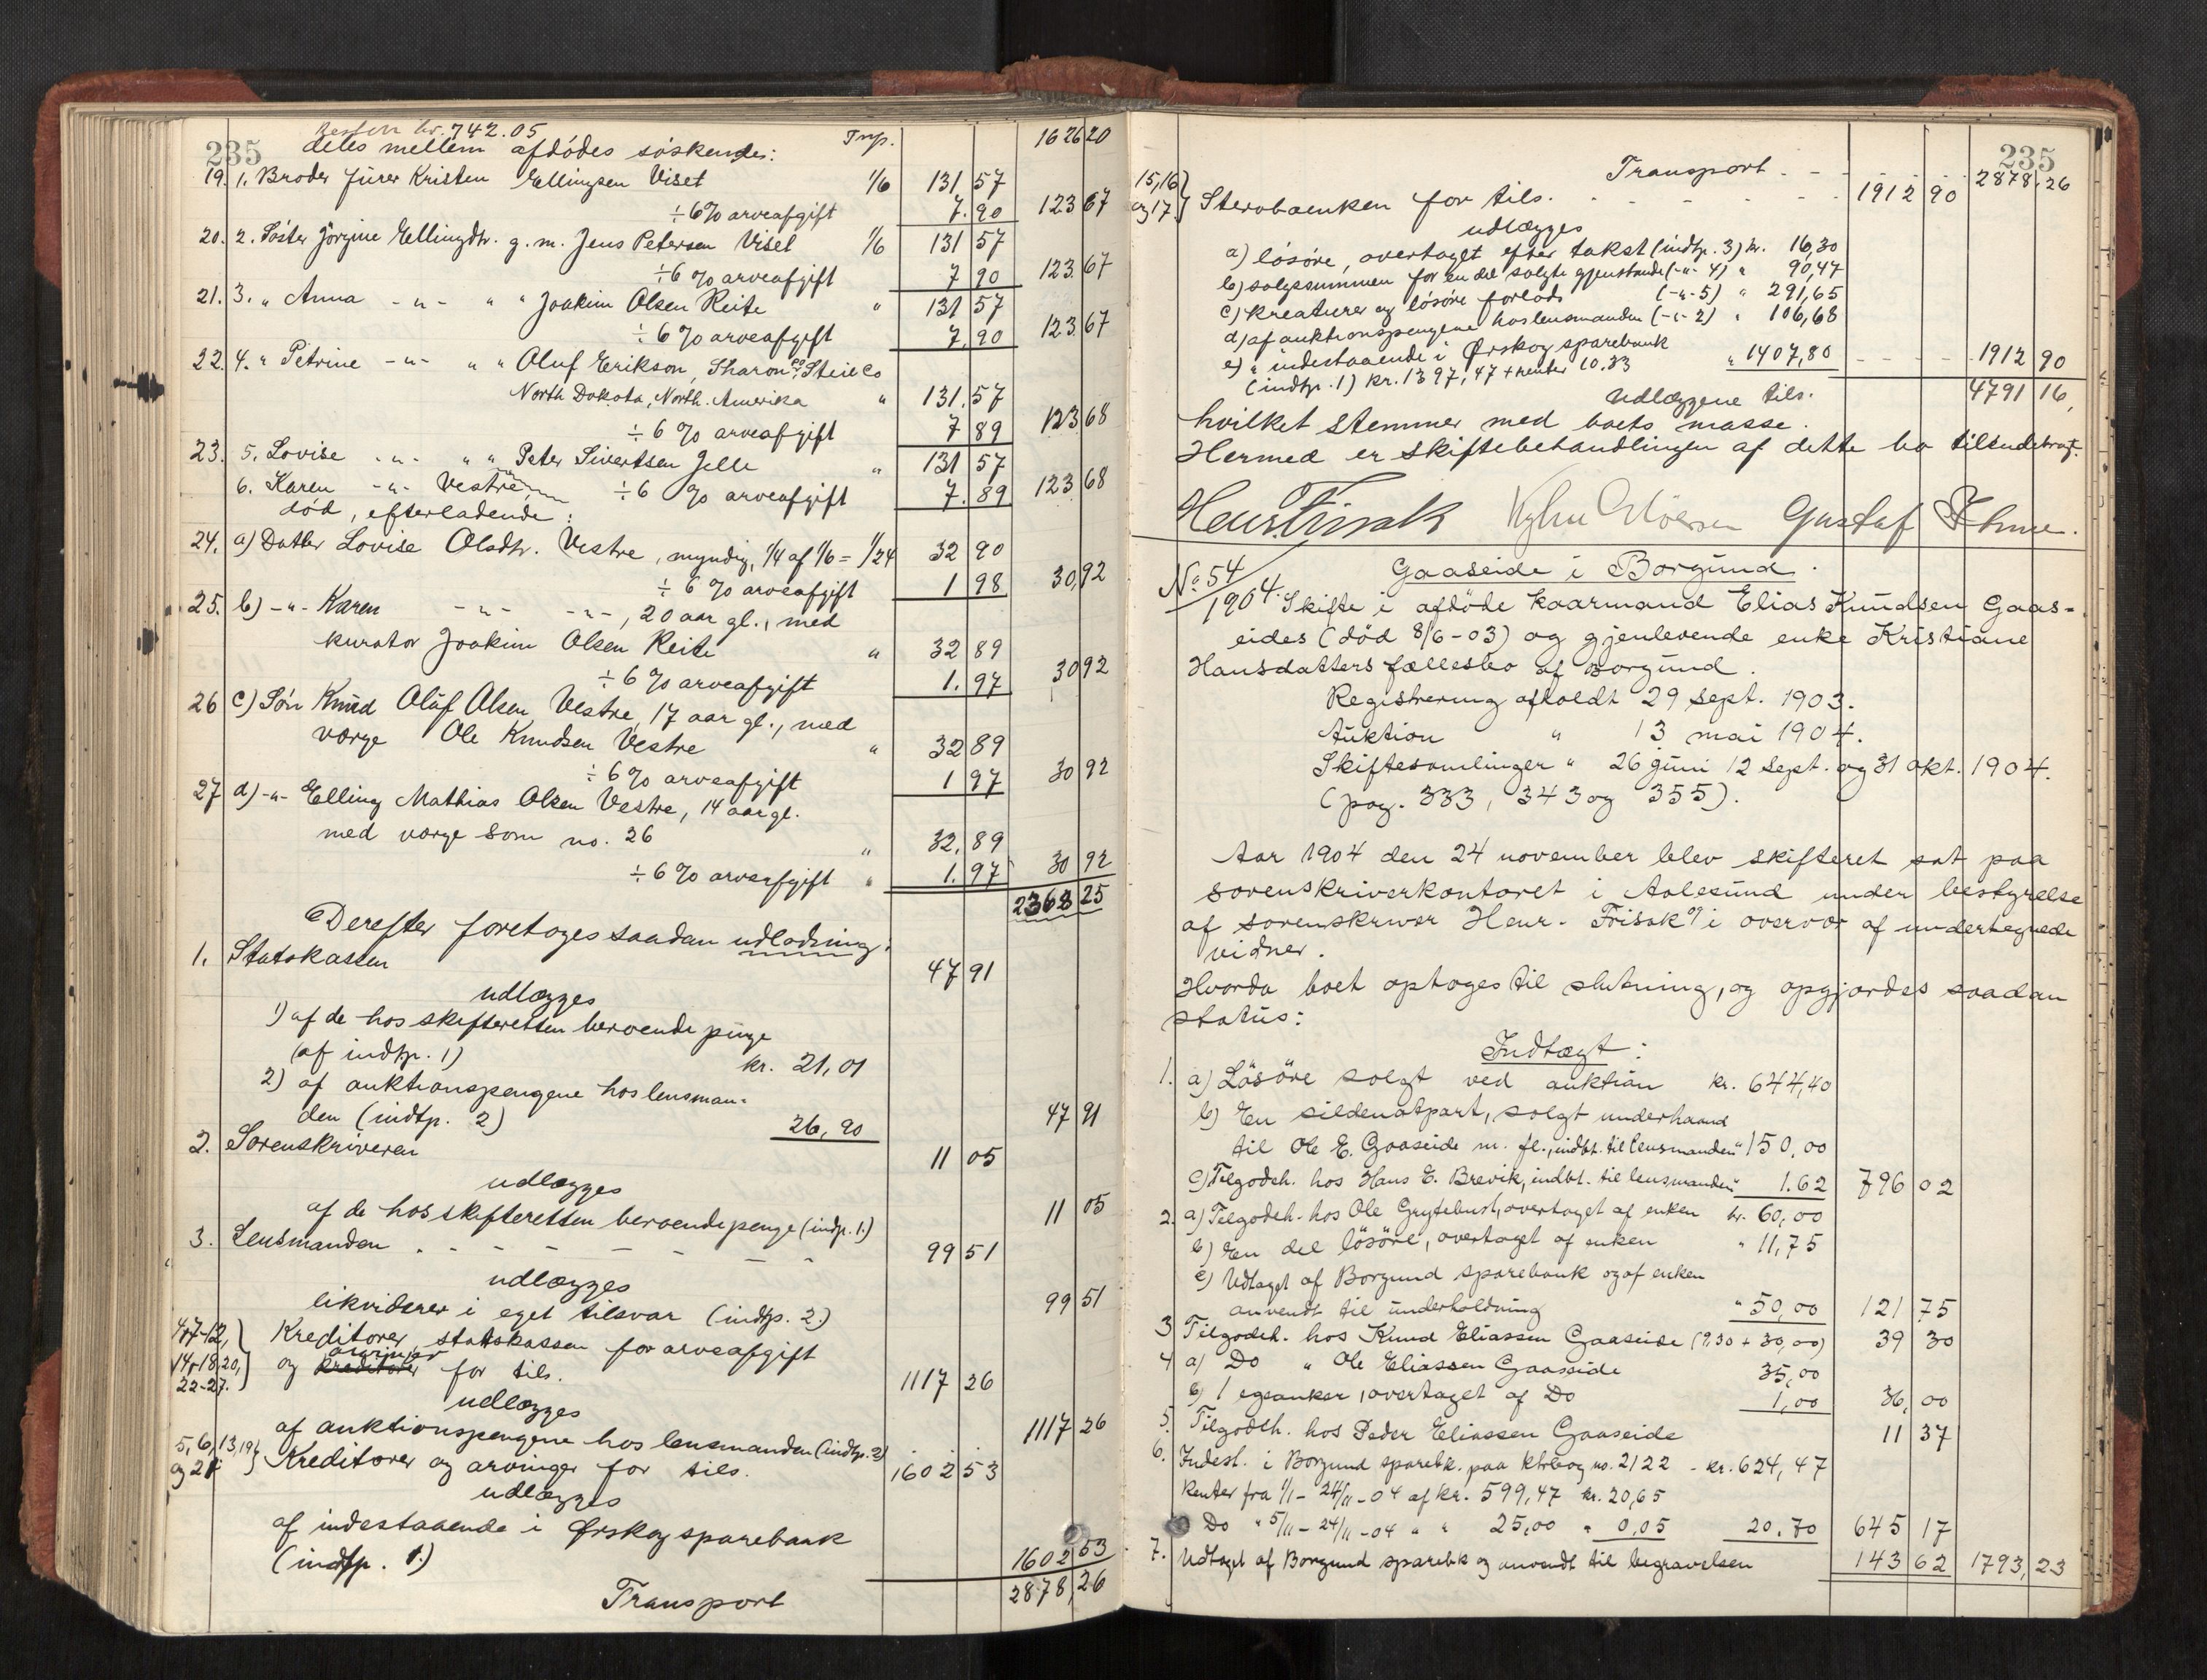 235
Resten kr. 742.05 Trsp. 1626 20
deles mellem afdödes söskende:
19. 1. Broder Jürer Kristen Ellingsen Viset 1/6 131 57
÷ 6% arveafgift 7.90 123 67
20. 2. Söster Jörgine Ellingsdtr. g. m. Jens Petersen Viset 1/6 131 57
÷ 6 % arveafgift 7 90 123 67
21. 3. " Anna -"- " " Joakim Olsen Reite " 131 57
÷ 6 % arveafgift 7.90 123 67
22. 4. " Petrine -"- " " Oluf Erikson, Sharon P.O. Steile Co
North Dakota, North. Amerika " 131.57
÷ 6 % arveafgift 7 89 123 68
23. 5. Lovise -"- " " Peter Sivertsen Jelle " 131 57
6. Karen -"- Vestre, ÷ 6 % arveafgift 7.89 123 68
död, efterladende:
24. a) Datter Lovise Olsdtr. Vestre, myndig, 1/4 af 1/6 = 1/24 32 90
÷ 6 % arveafgift 1 98 30,92
25. b) -"- Karen -"- -"-, 20 aar gl., med
kurator Joakim Olsen Reite " 32 89
÷ 6 % arveafgift 1.97 30 92
26 c) Sön Knud Oluf Olsen Vestre, 17 aar gl., med
værge Ole Knudsen Vestre " 32 89
÷ 6 % arveafgift 1 97 30 92
27 d) -"- Elling Mathias Olsen Vestre, 14 aar gl.
med værge som no. 26 " 32.89
÷ 6 % arveafgift " 1.97 30 92
2368 25
Derefter foretoges saadan udlodning:
1. Statskassen 47 91
udlægges
1) af de hos skifteretten beroende penge
(af indtp. 1) kr. 21,01
2) af auktionspengene hos lensman-
den (indtp. 2) 26,90 47 91
2. Sorenskriveren 11 05
udlægges
af de hos skifteretten beroende penge (indtp. 1.) 11 05
3. Lensmanden 99 51
udlægges
likviderer i eget tilsvar (indtp. 2.) 99 51
4, 7-12, Kreditorer, statskassen for arveafgift
14, 18, 20, og kreditorer arvinger for tils.
22-27. 1117 26
udlægges
af auktionspengene hos lensmanden (indtp. 2) 1117 26
5, 6, 13, 19 og 21 Kreditorer og arvinger for tils. 1602 53
udlægges
af indestaaende i Ørskog sparebank
(indtp. 1.) 1602 53
Transport 2878,26
235
Transport - - 2878,26
15,16 og 17 Stervboenken for tils. 1912 90
udlægges
a) lösöre, overtaget efter takst (indtp. 3) kr. 16,30
b) salgssummen for en del solgte gjenstande (-"- 4) " 90,47
c) kreaturer og lösöre forlods (-"- 5) " 291,65
d) af auktionspengene hos lensmanden (-"- 2) " 106,68
e) " indestaaende i Ørskog sparebank
(indtp. 1) kr. 1397,47 + renter 10.33 " 1407,80 - - - - 1912 90
Udlæggene tils. 4791 16
hvilket stemmer med boets masse.
Hermed er skiftebehandlingen af dette bo tilendebragt.
Henr. Frisak Gustaf
No. 54/1904. Gaaseide i Borgund.
Skifte i afdöde kaarmand Elias Knudsen Gaas-
eides (död 8/6-03) og gjenlevende enke Kristiane
Hansdatters fællesbo af Borgund.
Registrering afholdt 29 sept. 1903.
Auktion " 13 mai 1904.
Skiftesamlinger " 26 juni 12 sept. og 31 okt. 1904.
(pag. 333, 343 og 355).
Aar 1904 den 24 november blev skifteret sat paa
sorenskriverkontoret i Aalesund under bestyrelse
af sorenskriver Henr. Frisak og i overvær af undertegnede
vidner.
Hvorda boet optoges til slutning, og opgjordes saadan
status:
Indtægt:
1. a) Lösöre solgt ved auktion kr. 644,40
b) En sildenotpart, solgt underhaand
til Ole E. Gaaseide m. fl., indbt. til lensmanden " 150,00
c) Tilgodeh. hos Hans E. Brevik, indbt. til lensmanden " 1.62 796 02
2. a) Tilgodeh. hos Ole Grytebust, overtaget af enken kr. 60,00
b) En del lösöre, overtaget af enken " 11,75
c) Udtaget af Borgund sparebank og af enken
anvendt til underholdning " 50,00 121 75
3 Tilgodeh. hos Knud Eliassen Gaaseide (9,30 + 30,00) 39 30
4 a) Do " Ole Eliassen Gaaseide 35,00
b) 1 egeanker, overtaget af Do 1,00 36,00
5. Tilgodeh. hos Peder Eliassen Gaaseide 11 37
6. Indest. i Borgund sparebk. paa ktrbog no. 2122 - kr. 624,47
Renter fra 1/1 - 24/11-04 af kr. 599,47 kr. 20,65
Do " 5/11 - 24/11-04 " " 25,00 " 0,05 20.70 645 17
7. Udtaget af Borgund sparebk og anvendt til begravelsen 143 62 1793,23